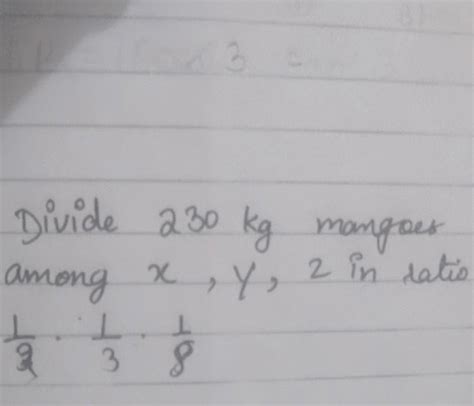 Divide 230 kg mangoes
among x, y, z in ratio
1/2 . 1/3 . 1/8